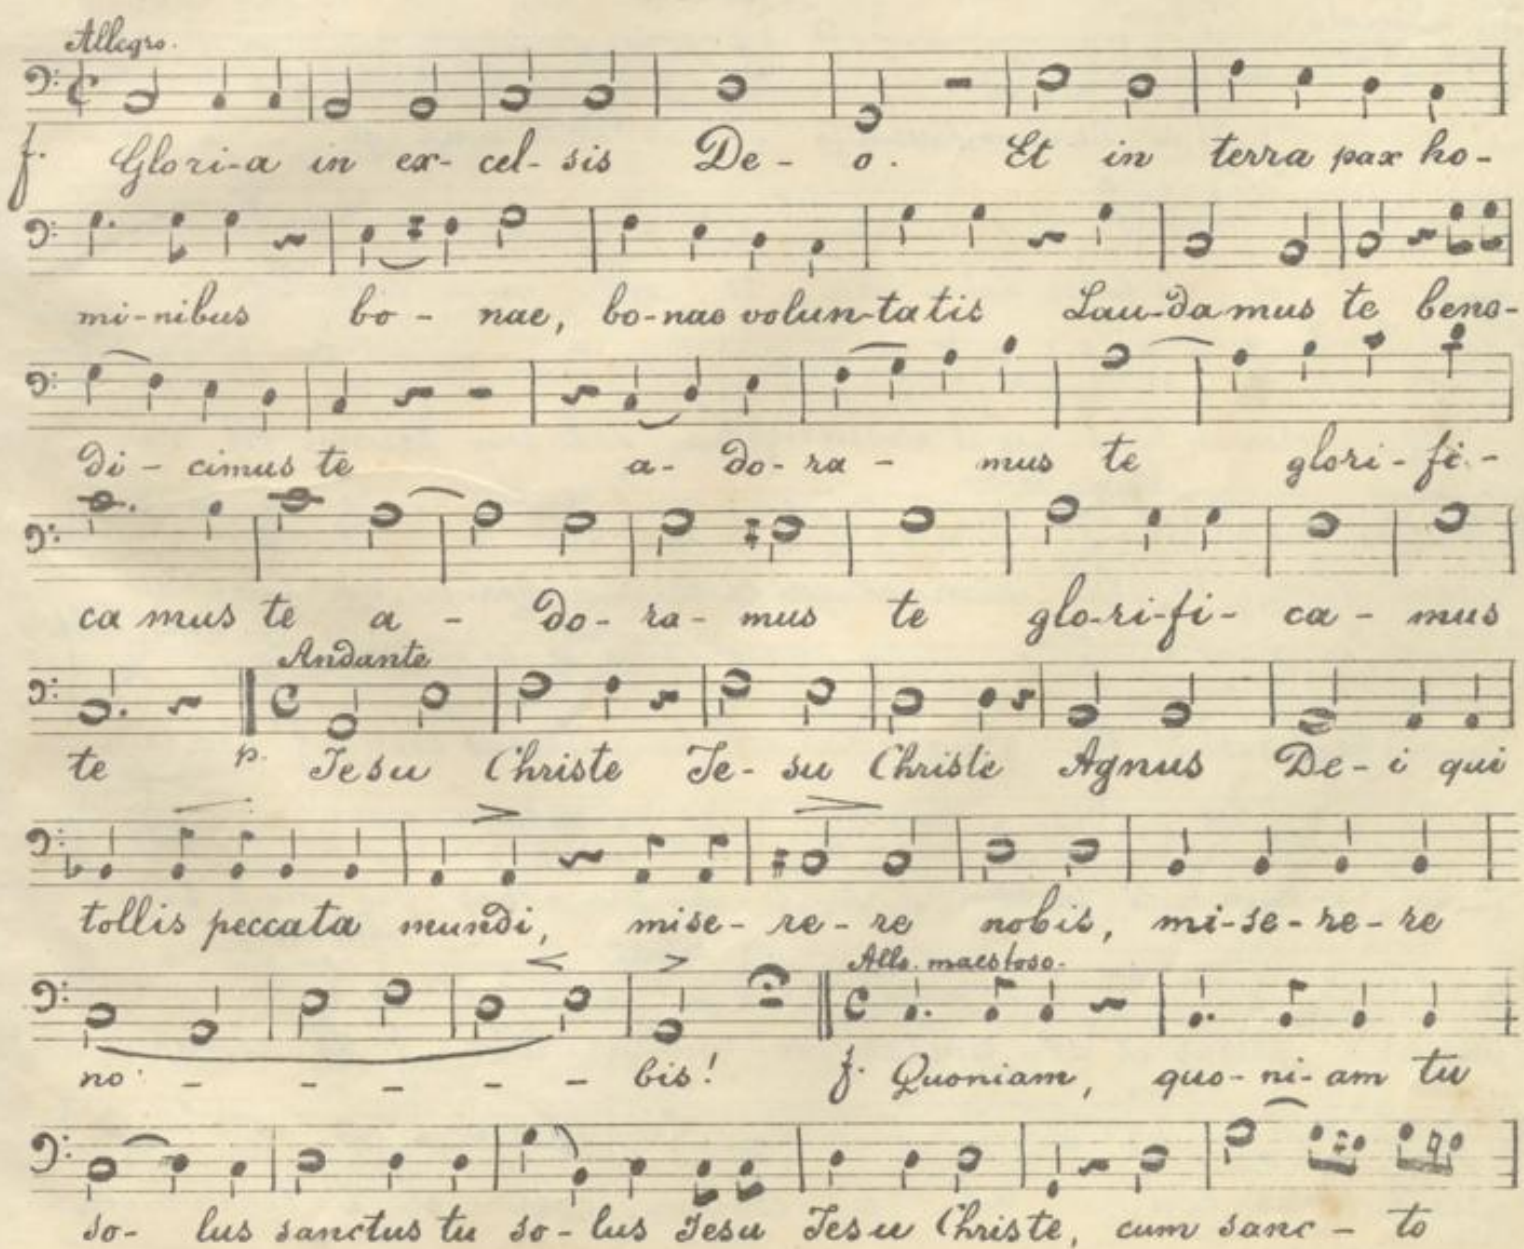 Allegro.
f. Glori-a in ex- cel- sis De- o. Et in terra pax ho-
mi-nibus bo- nae, bo-nae volun-tatis Lau-damus te bene-
di- cimus te a- do- ra- mus te glori- fi-
ca mus te a - do- ra- mus te glo-ri-fi- ca- mus
Andante
te p. Jesu Christe Je- su Christe Agnus De- i qui
tollis peccata mundi, mise- re- re nobis, mi-se-re-re
Allo. maestoso.
no - - - - - bis! f. Quoniam, quo-ni-am tu
so- lus sanctus tu so- lus Jesu Jesu Christe, cum sanc- to